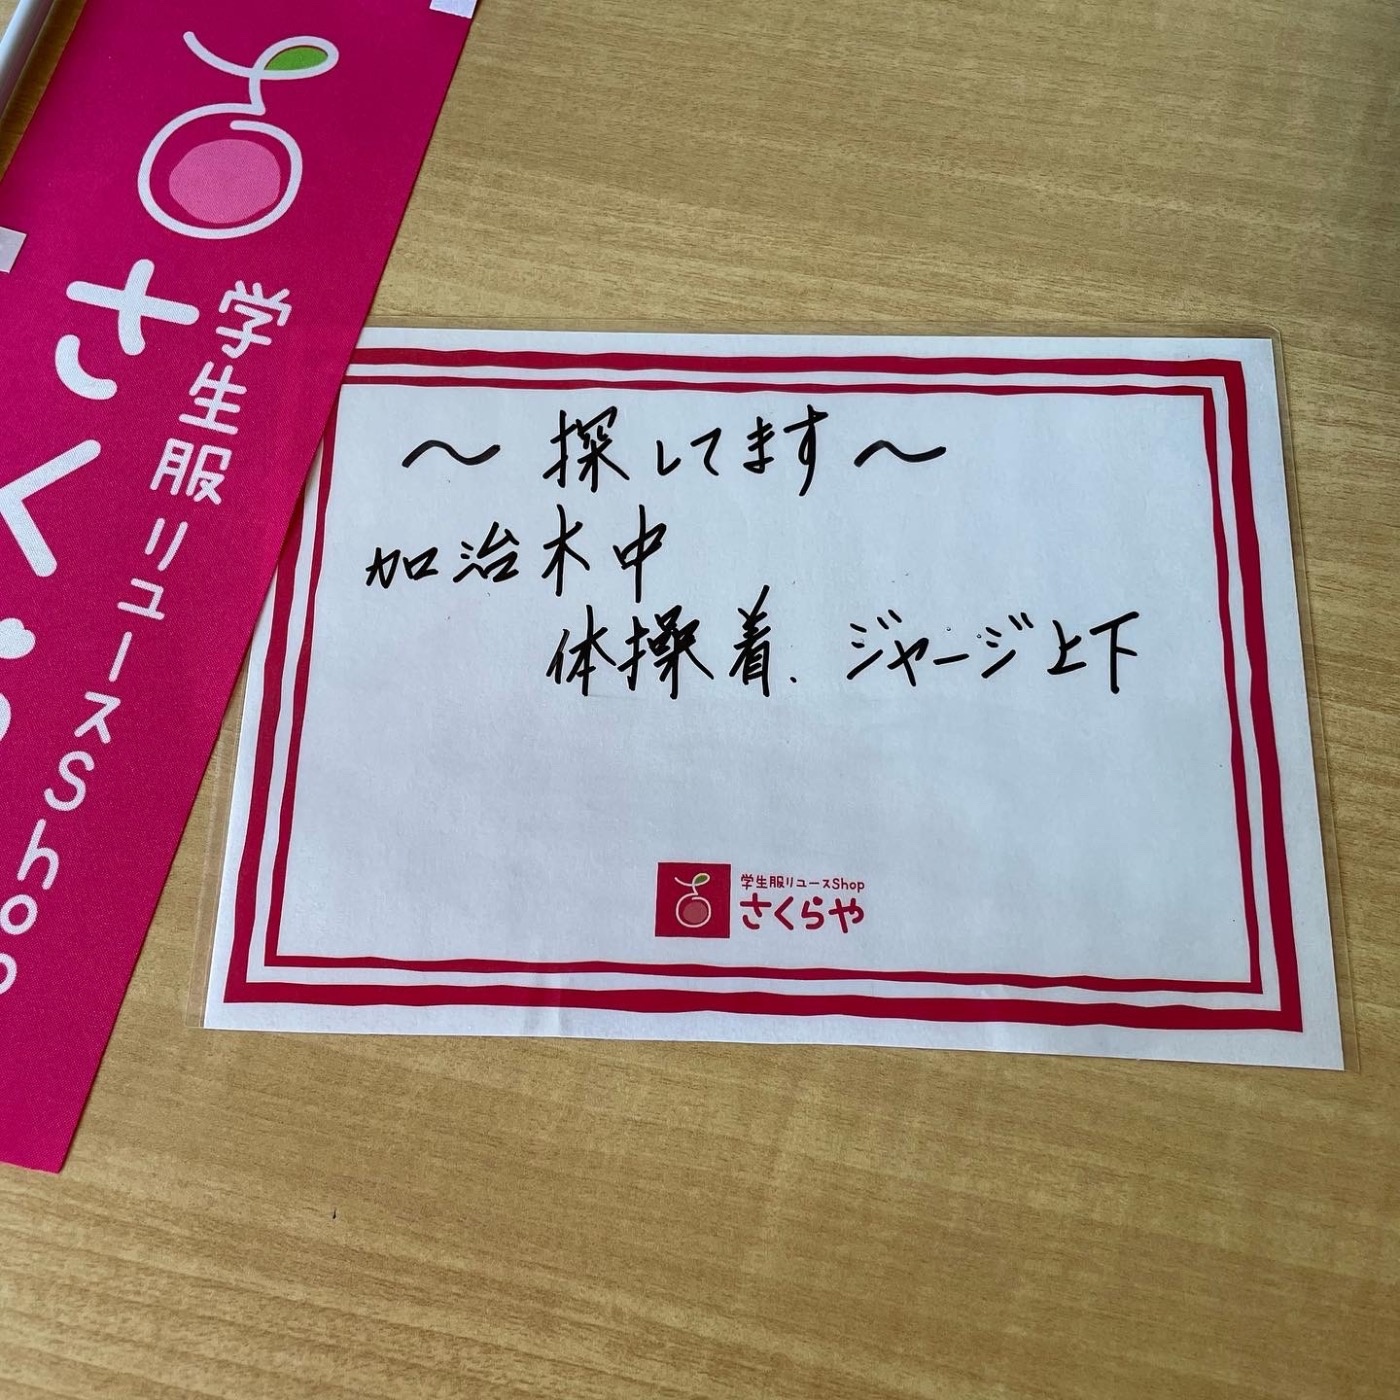 学生服リユースShop
さくら
〜 探してます 〜
加治木中
体操着. ジャージ上下
学生服リユースShop
さくらや